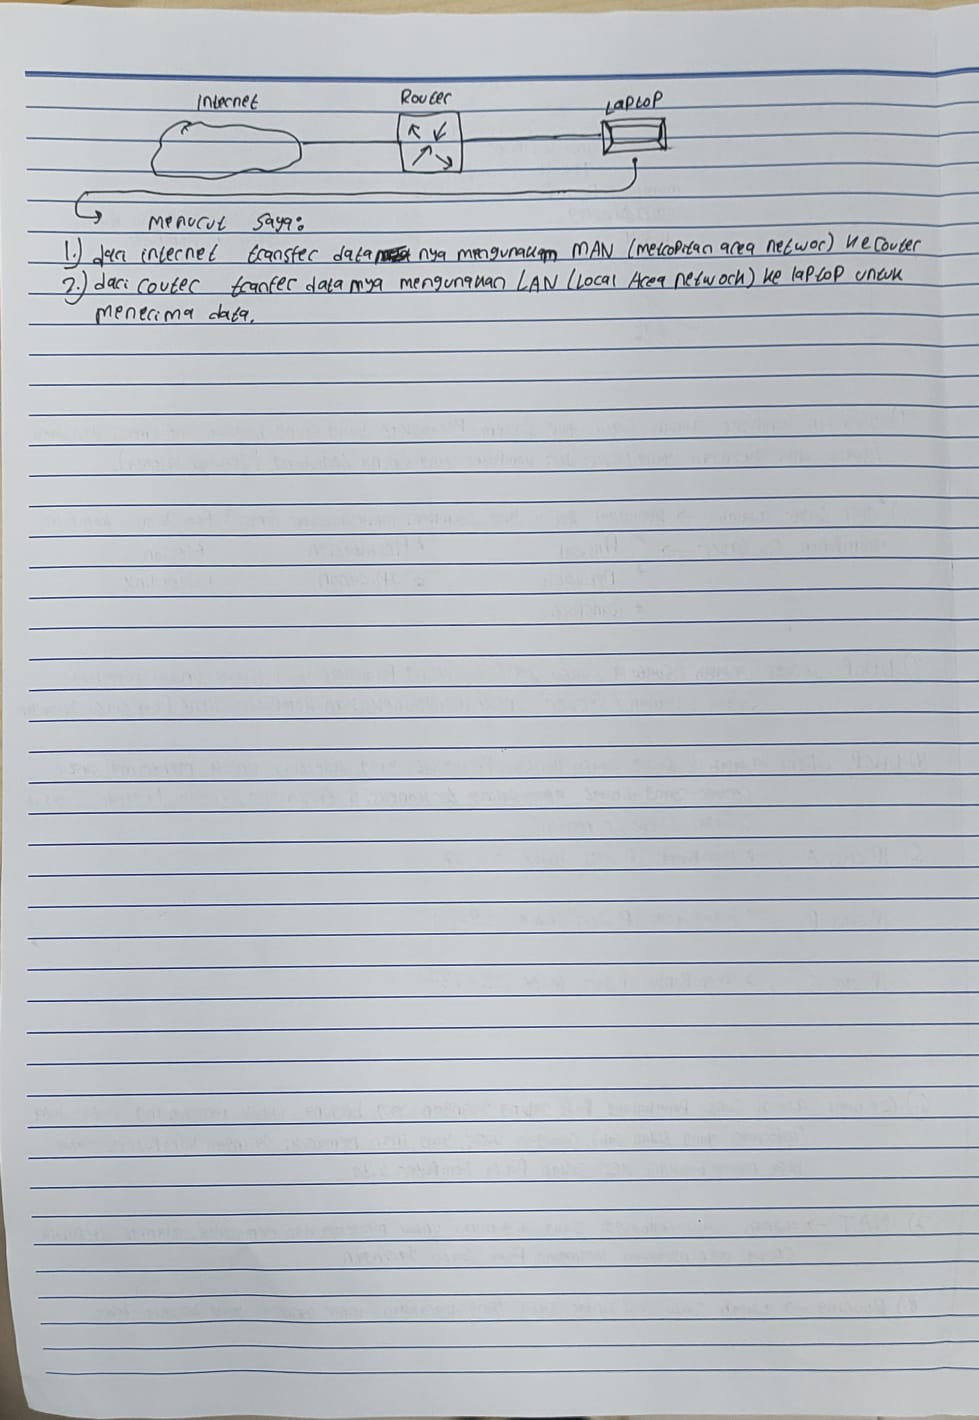 Internet
Router
Laptop
Menurut saya:
1.) dari internet transfer data nya mengunakan MAN (metropitan area networ) ke router
2.) dari router tranfer data nya mengunakan LAN (Local Area network) ke laptop untuk
menerima data.